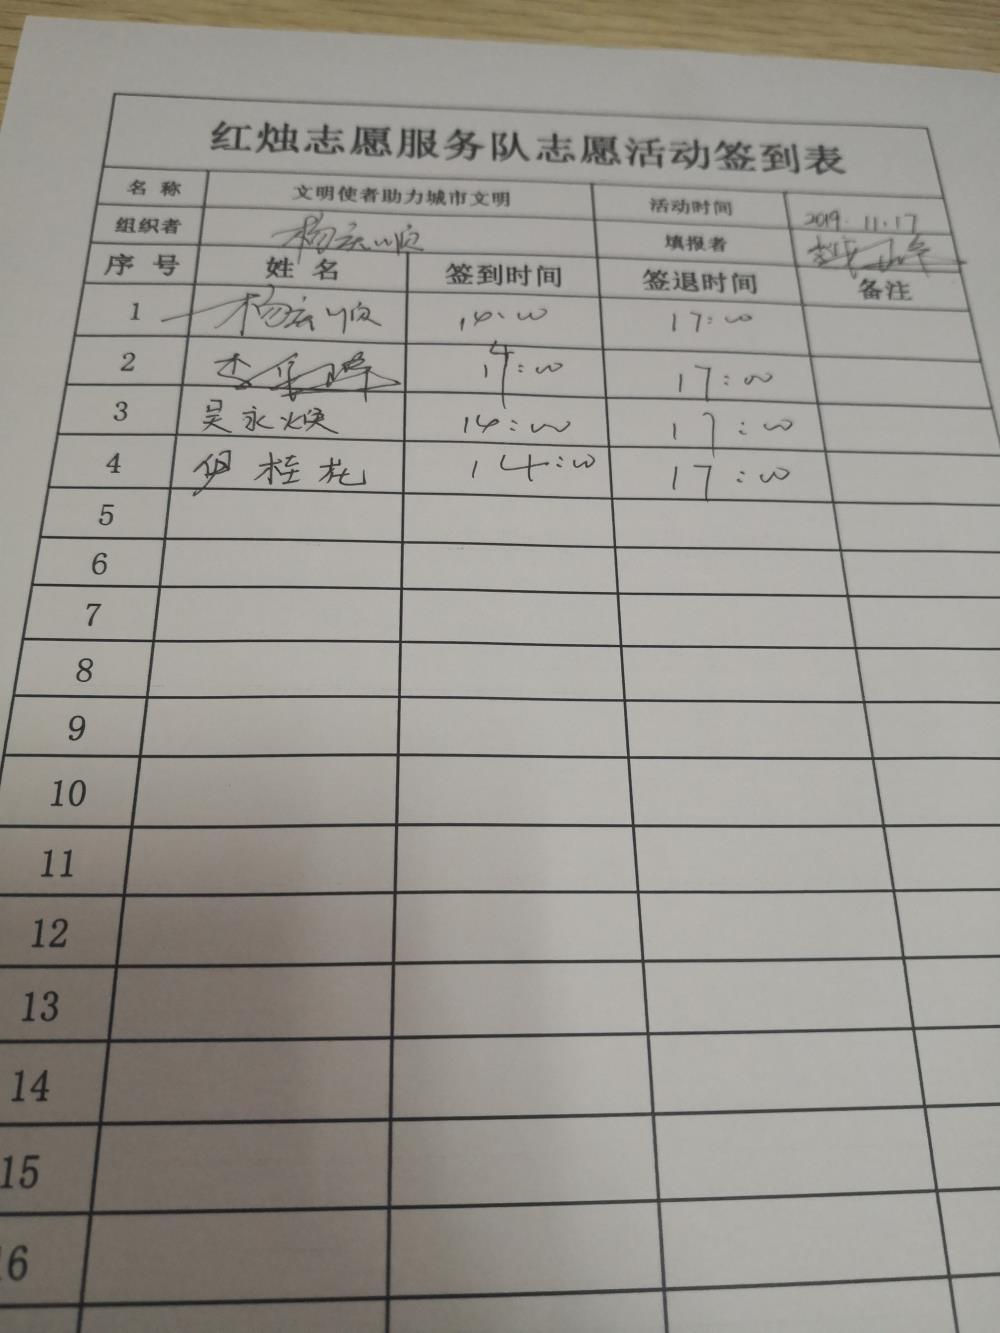 红烛志愿服务队志愿活动签到表
名 称 文明使者助力城市文明 活动时间 2019.11.17
组织者 填报者
序 号 姓 名 签到时间 签退时间 备注
1 14:00 17:00
2 14:00 17:00
3 吴永焕 14:00 17:00
4 桂花 14:00 17:00
5
6
7
8
9
10
11
12
13
14
15
16